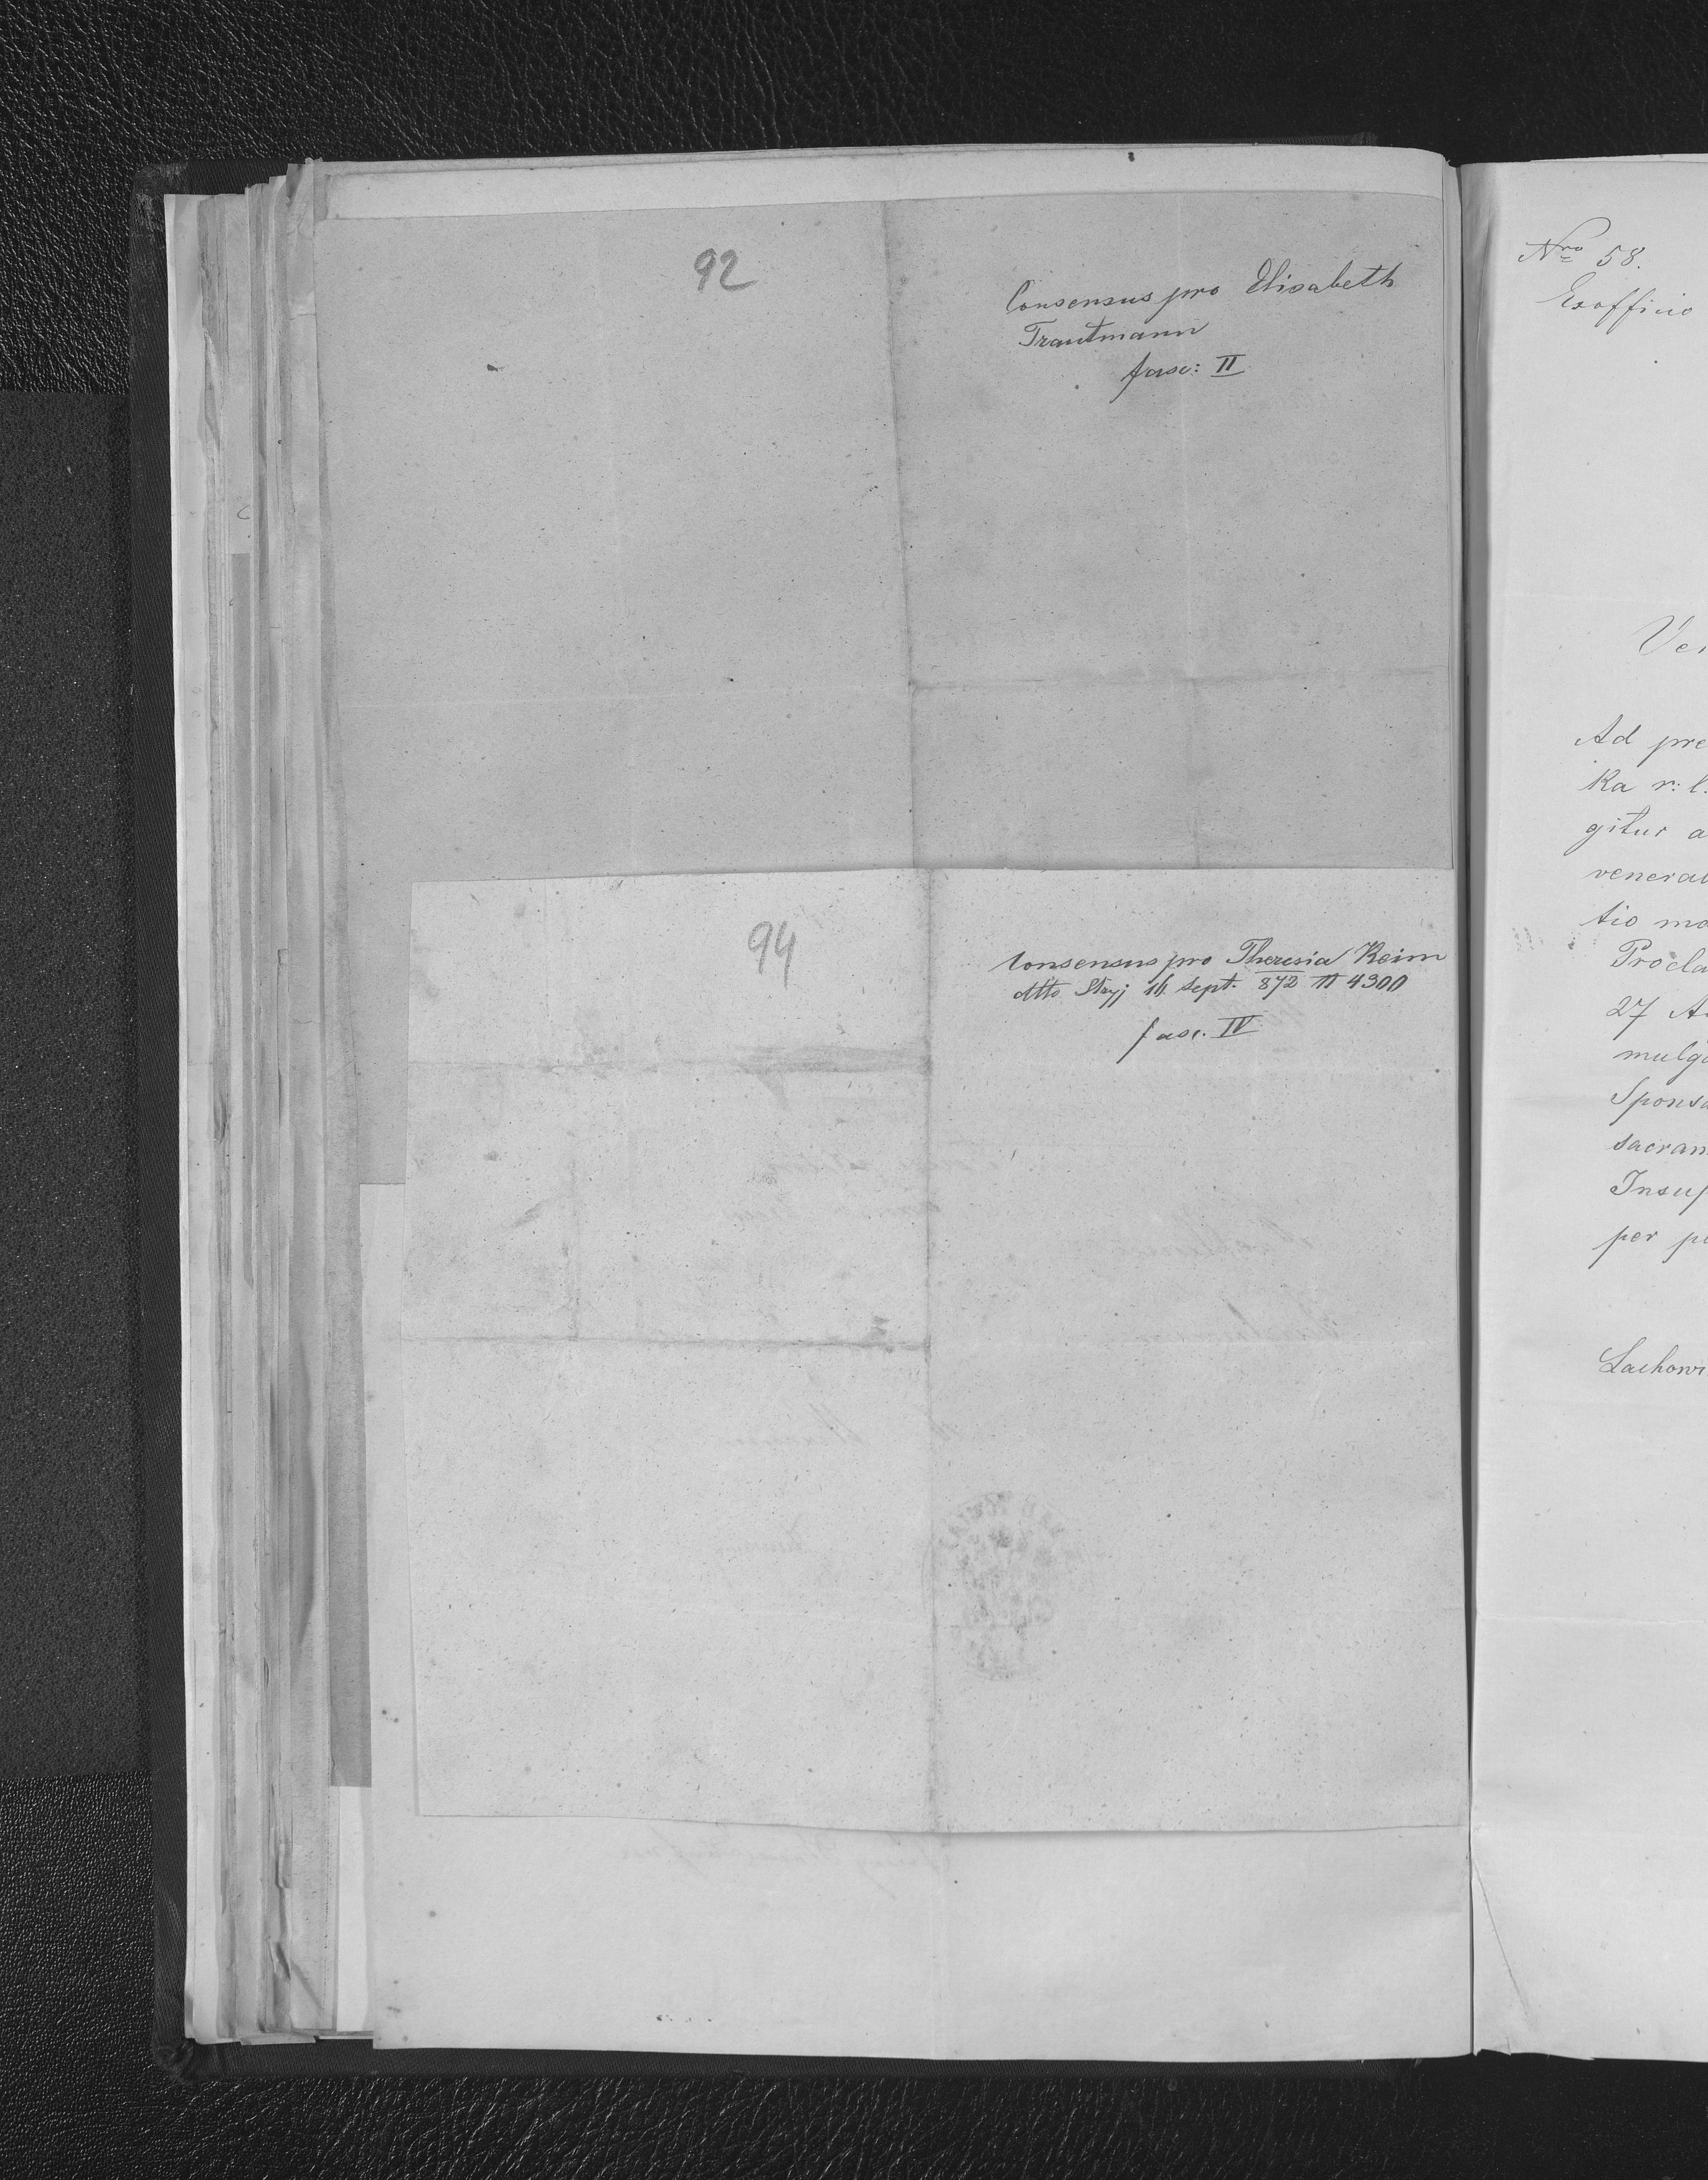 92
Consensus pro Elisabeth
Trautmann
fasc: II
94
Consensus pro Theresia Keim
dtto Stryj 16 Sept. 872 N 4300
fasc. IV
Nro 58.
Exofficio
Ver
Ad pre
ka r: l.
gitur a
venerab
tio ma
Procla
27 Au
mulga
Sponsa
sacram
Insup
per pu
Lachow